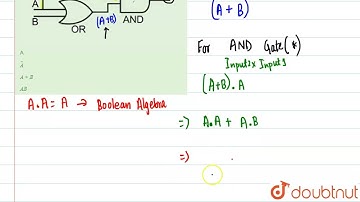 A
B
OR
(A+B)
AND
(A + B)
For AND Gate (*)
Input 1 x Input 2
(A+B).A
A.A = A → Boolean Algebra
⇒ A.A + A.B
⇒
doubtnut